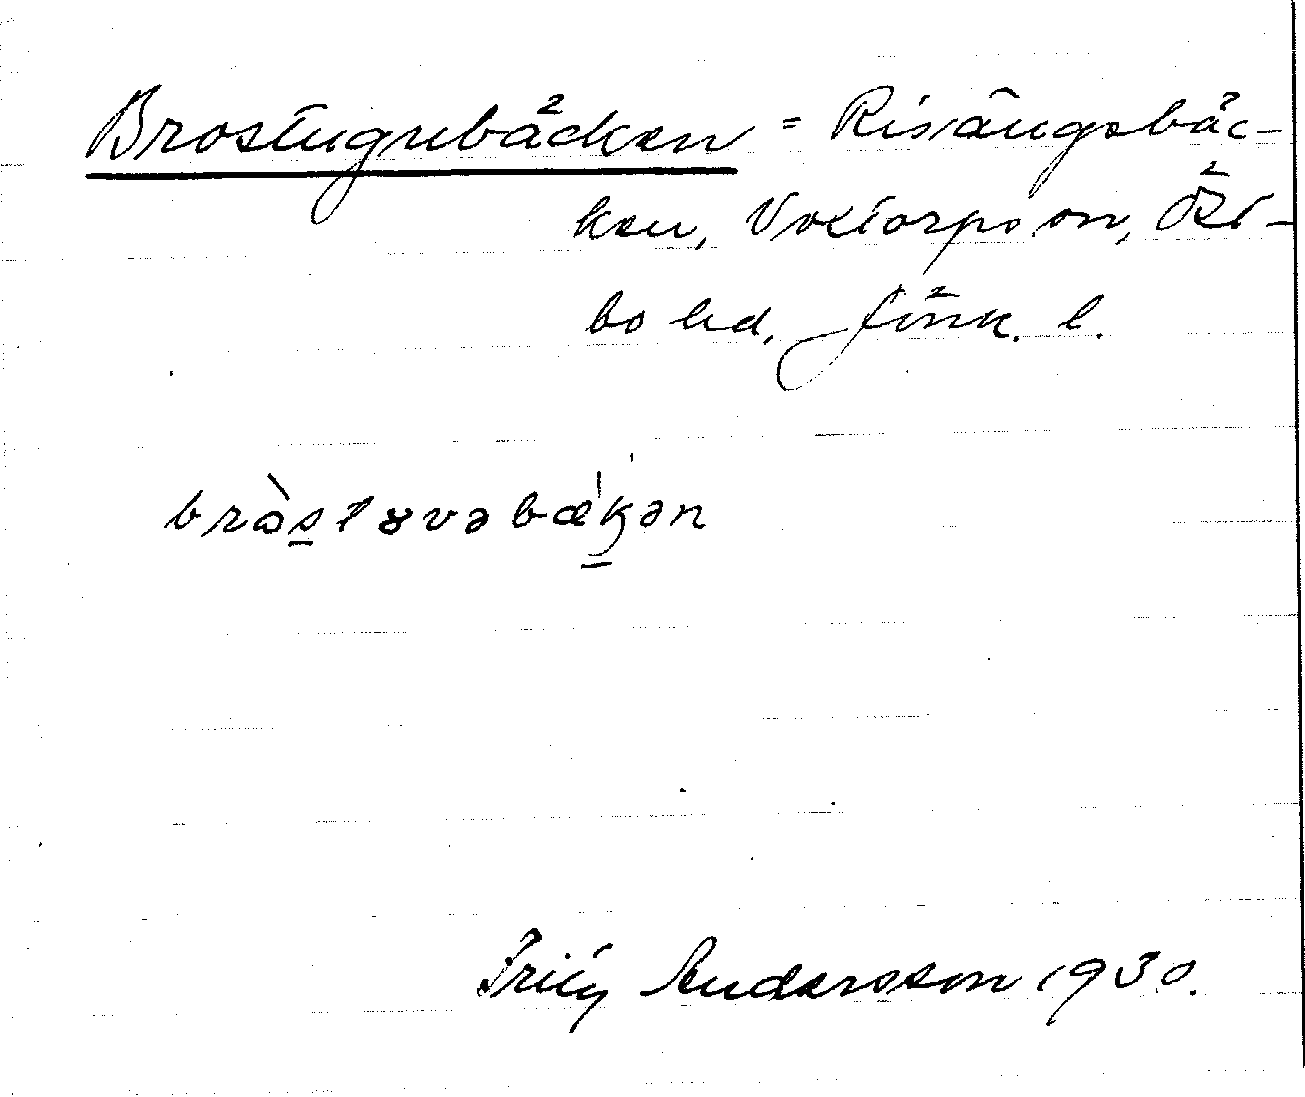 Brostugubäcken = Risängsbäc-
ken, Voxtorps sn, Öst-
bo hd, Jönk. l.
bròstɤvəbæ̀kən
Fritz Andersson 1930.